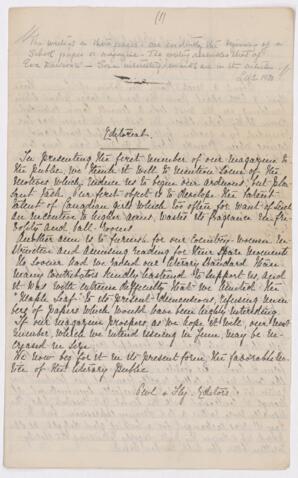 (1)
The writing on these pages are evidently the beginning of a
School paper or magazine. The writing resembles that of
Eva
Editorial.
In presenting the first number of our magazine to
the public, we think it well to mention some of the
motives which induce us to begin our arduous, but plea-
sant task. Our first object is to develope the latent
talent of Canadian girls which too often for want of such
an incentive to higher aims, wastes its fragrance in fri-
volity and ball-rooms
Another aim is to furnish for our country-women in-
structive and amusing reading for their spare moments
No sooner had we raised our literary standard than
many contributors kindly hastened to support us, and
it was with extreme difficulty that we limited the
"Maple Leaf" to its present dimensions, refusing num-
bers of papers which would have been highly interesting.
If our magazine prospers as we hope it will, our next
number, which we intend issuing in June, may be in-
creased in size.
We now beg for it in its present form, the favorable no-
tice of the literary public
Owl & Fly. Editors.